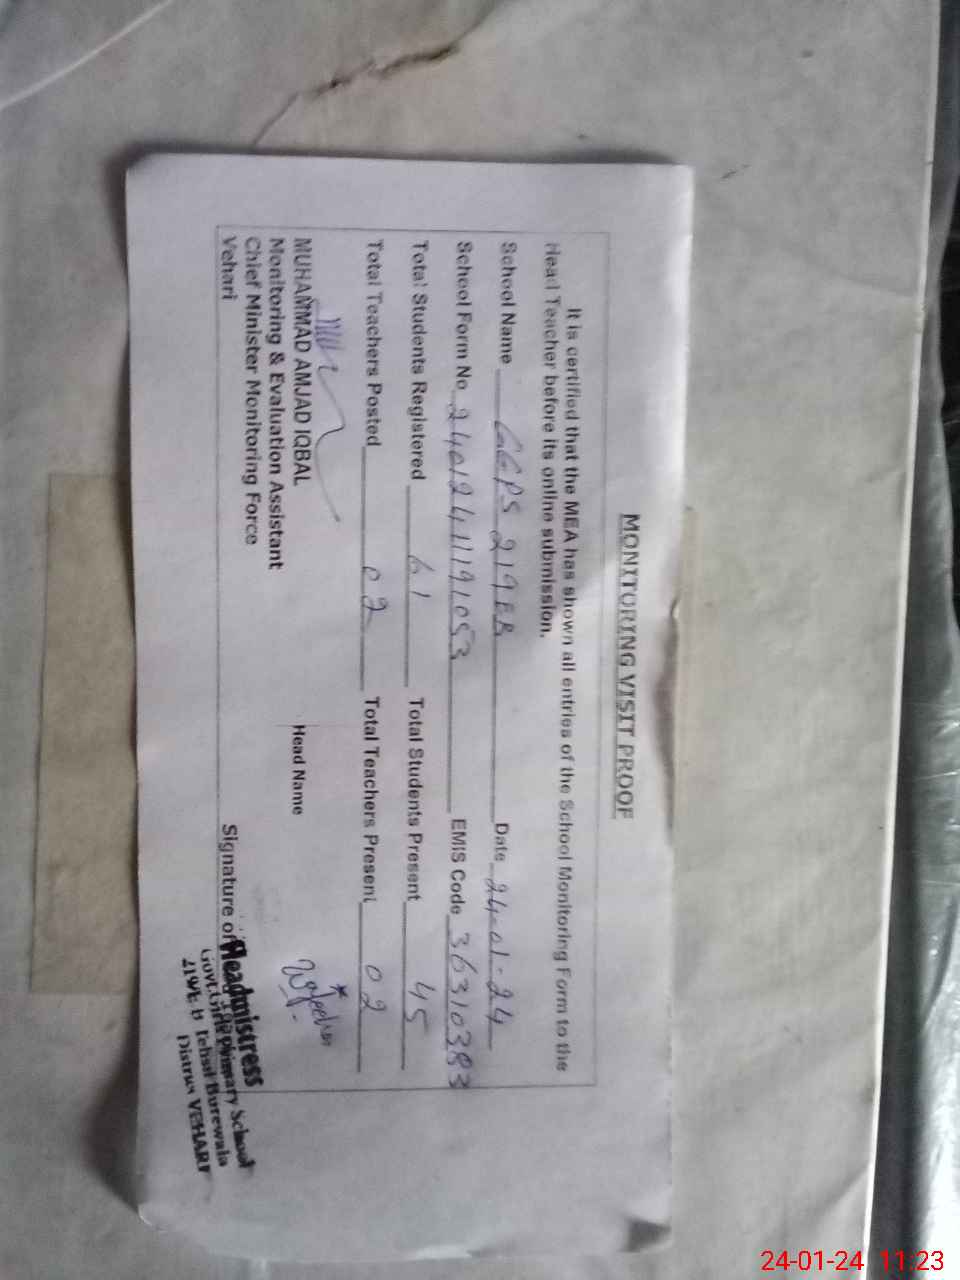 MONITORING VISIT PROOF
It is certified that the MEA has shown all entries of the School Monitoring Form to the
Head Teacher before its online submission.
School Name GGPS 219EB Date 24-01-24
School Form No 240124111191053 EMIS Code 36310383
Total Students Registered 61 Total Students Present 45
Total Teachers Posted 02 Total Teachers Present 02
MUHAMMAD AMJAD IQBAL Head Name
Monitoring & Evaluation Assistant
Chief Minister Monitoring Force
Vehari Signature of
Headmistress
Govt. Girls Primary School
219E B Tehsil Burewala
District VEHARI
24-01-24 11:23